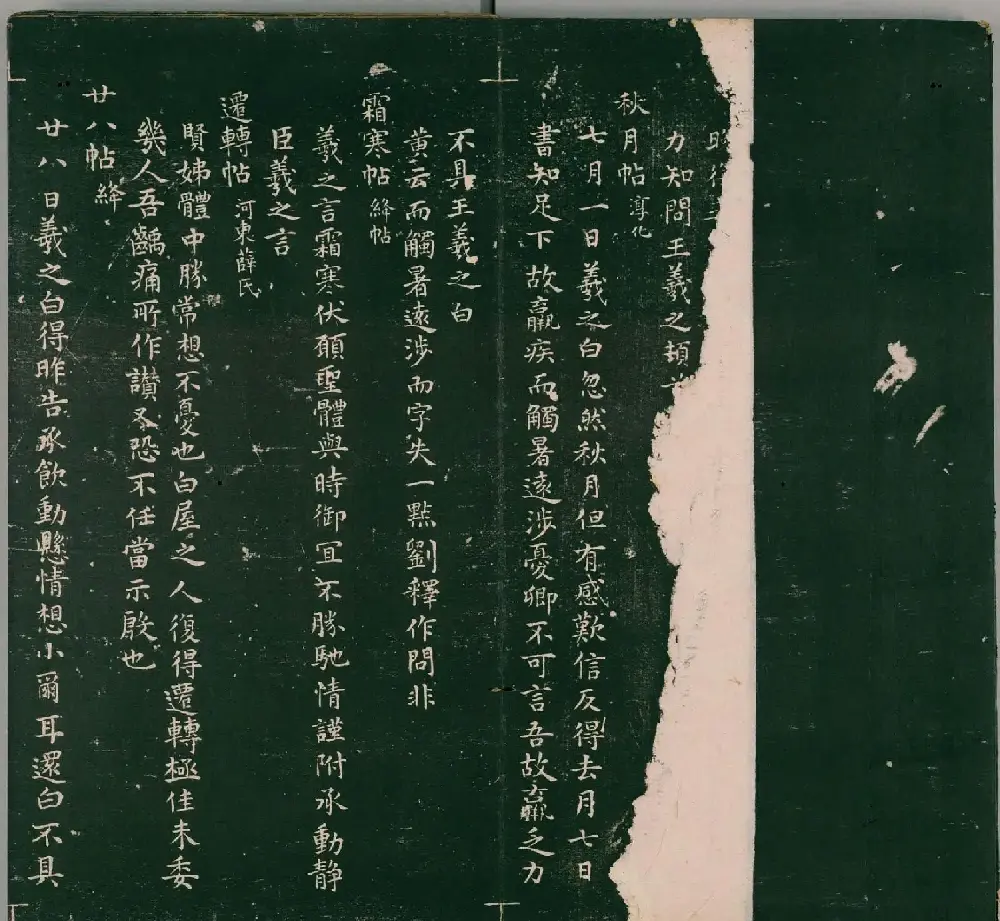 力知問王羲之頓
秋月帖 淳化
七月一日羲之白忽然秋月但有感歎信反得去月七日
書知足下故羸疾而觸暑遠涉憂卿不可言吾故羸乏力
不具王羲之白
黃云而觸暑遠涉而字失一點劉釋作問非
霜寒帖 絳帖
羲之言霜寒伏願聖體與時御宜不勝馳情謹附承動静
臣羲之言
遷轉帖 河東薛氏
賢姊體中勝常想不憂也白屋之人復得遷轉極佳未委
幾人吾齲痛所作讃又恐不任當示殷也
廿八帖 絳
廿八日羲之白得昨告承飲動懸情想小爾耳還白不具